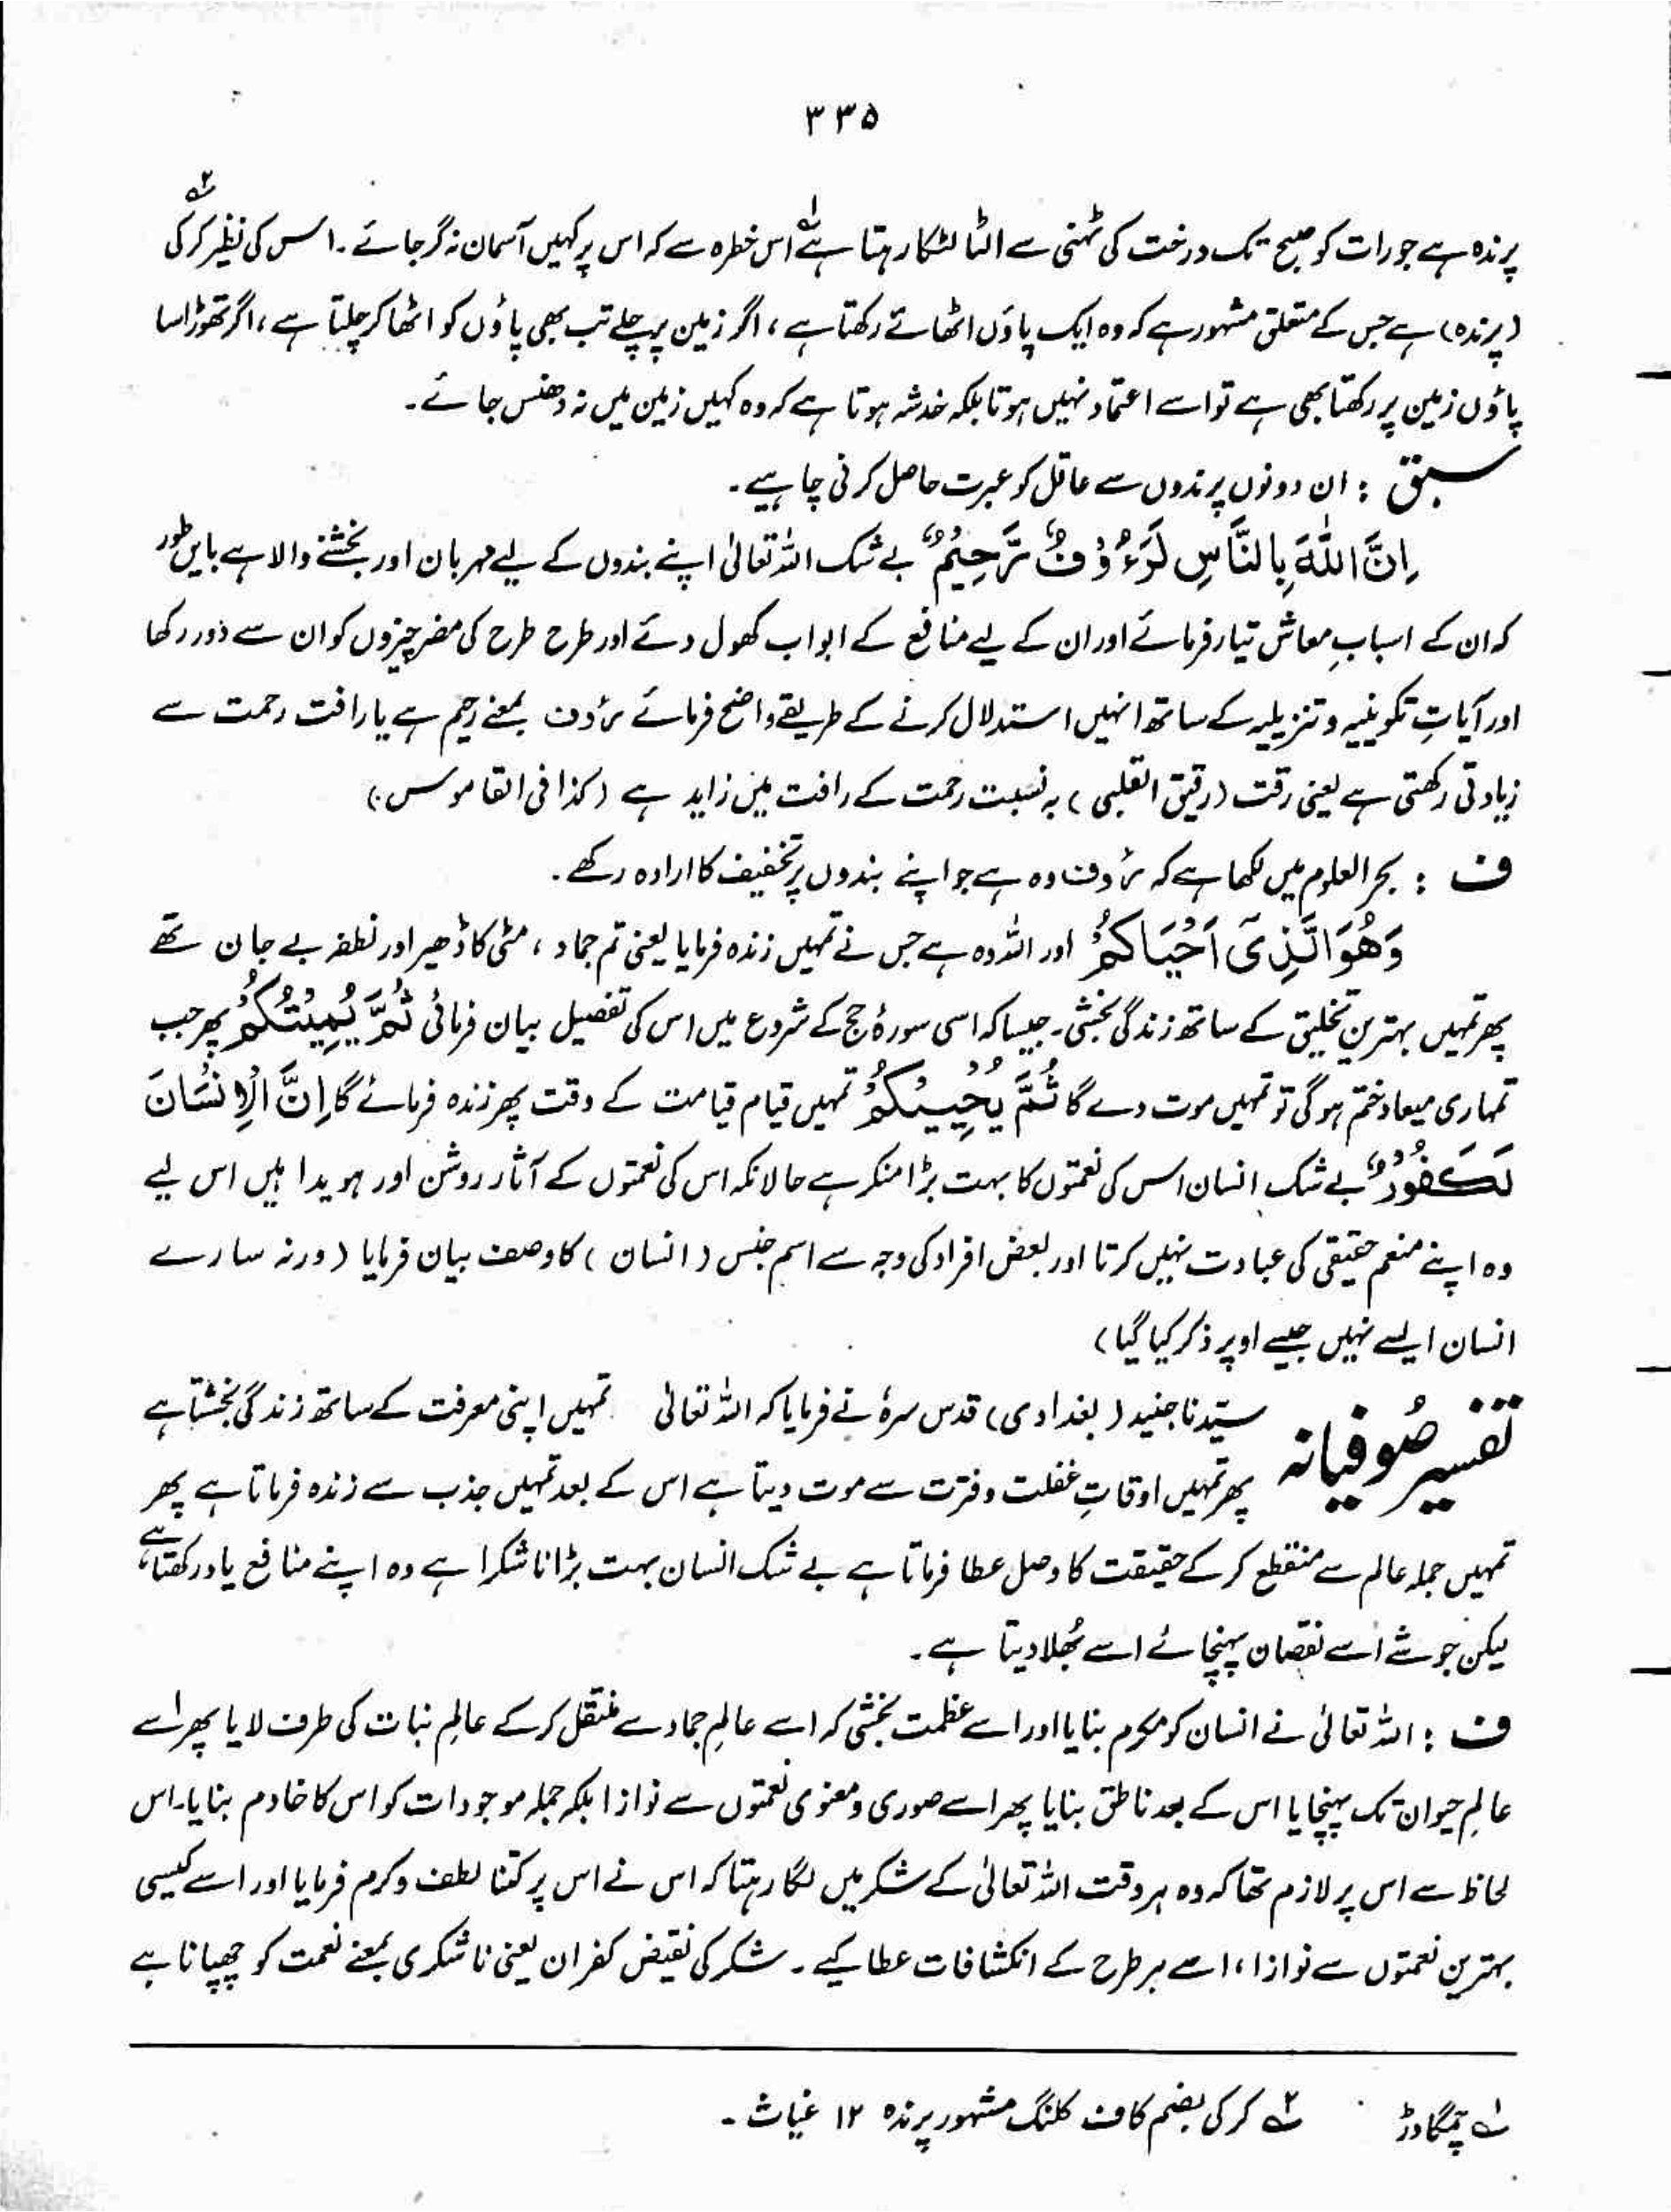 ۳۳۵
پرندہ ہے جو رات کو صبح تک درخت کی ٹہنی سے الٹا لٹکا رہتا ہے۱؎ اس خطرہ سے کہ اس پر کہیں آسمان نہ گر جائے۔ اس کی نظیر کرکی۲؎
(پرندہ) ہے جس کے متعلق مشہور ہے کہ وہ ایک پاؤں اٹھائے رکھتا ہے، اگر زمین پر چلے تب بھی پاؤں کو اٹھا کر چلتا ہے، اگر تھوڑا سا
پاؤں زمین پر رکھتا بھی ہے تو اسے اعتماد نہیں ہوتا بلکہ خدشہ ہوتا ہے کہ وہ کہیں زمین میں نہ دھنس جائے۔
سبق : ان دونوں پرندوں سے عاقل کو عبرت حاصل کرنی چاہیے۔
اِنَّ اللّٰهَ بِالنَّاسِ لَرَءُوْفٌ رَّحِيْمٌ بے شک اللہ تعالیٰ اپنے بندوں کے لیے مہربان اور بخشنے والا ہے بایں طور
کہ ان کے اسبابِ معاش تیار فرمائے اور ان کے لیے منافع کے ابواب کھول دئے اور طرح طرح کی مضر چیزوں کو ان سے دور رکھا
اور آیاتِ تکوینیہ و تنزیلیہ کے ساتھ انہیں استدلال کرنے کے طریقے واضح فرمائے رؤف بمعنے رحیم ہے یا رافت رحمت سے
زیادتی رکھتی ہے یعنی رقت (رقیق القلبی) بہ نسبت رحمت کے رافت میں زاید ہے (کذا فی القاموس)
ف : بحر العلوم میں لکھا ہے کہ رؤف وہ ہے جو اپنے بندوں پر تخفیف کا ارادہ رکھے۔
وَهُوَ الَّذِیْۤ اَحْيَاكُمْ اور اللہ وہ ہے جس نے تمہیں زندہ فرمایا یعنی تم جماد، مٹی کا ڈھیر اور نطفہ بے جان تھے
پھر تمہیں بہترین تخلیق کے ساتھ زندگی بخشی۔ جیسا کہ اسی سورۂ حج کے شروع میں اس کی تفصیل بیان فرمائی ثُمَّ يُمِيْتُكُمْ پھر جب
تمہاری میعاد ختم ہوگی تو تمہیں موت دے گا ثُمَّ يُحْيِيْكُمْ تمہیں قیام قیامت کے وقت پھر زندہ فرمائے گا اِنَّ الْاِنْسَانَ
لَكَفُوْرٌ بے شک انسان اس کی نعمتوں کا بہت بڑا منکر ہے حالانکہ اس کی نعمتوں کے آثار روشن اور ہویدا ہیں اس لیے
وہ اپنے منعم حقیقی کی عبادت نہیں کرتا اور بعض افراد کی وجہ سے اسم جنس (انسان) کا وصف بیان فرمایا (ورنہ سارے
انسان ایسے نہیں جیسے اوپر ذکر کیا گیا)
تفسیر صوفیانہ سیّدنا جنید (بغدادی) قدس سرہٗ نے فرمایا کہ اللہ تعالیٰ تمہیں اپنی معرفت کے ساتھ زندگی بخشتا ہے
پھر تمہیں اوقاتِ غفلت و فترت سے موت دیتا ہے اس کے بعد تمہیں جذب سے زندہ فرماتا ہے پھر
تمہیں جملہ عالم سے منقطع کر کے حقیقت کا وصل عطا فرماتا ہے بے شک انسان بہت بڑا ناشکرا ہے وہ اپنے منافع یاد رکھتا ہے،
لیکن جو شے اسے نقصان پہنچائے اسے بُھلا دیتا ہے۔
ف : اللہ تعالیٰ نے انسان کو مکرم بنایا اور اسے عظمت بخشی کہ اسے عالمِ جماد سے منتقل کر کے عالمِ نبات کی طرف لایا پھر اسے
عالمِ حیوان تک پہنچایا اس کے بعد ناطق بنایا پھر اسے صوری و معنوی نعمتوں سے نوازا بلکہ جملہ موجودات کو اس کا خادم بنایا۔ اس
لحاظ سے اس پر لازم تھا کہ وہ ہر وقت اللہ تعالیٰ کے شکر میں لگا رہتا کہ اس نے اس پر کتنا لطف و کرم فرمایا اور اسے کیسی
بہترین نعمتوں سے نوازا، اسے ہر طرح کے انکشافات عطا کیے۔ شکر کی نقیض کفران یعنی ناشکری بمعنے نعمت کو چھپانا ہے
۱؎ چمگادڑ ۲؎ کرکی بضم کاف کلنگ مشہور پرندہ ۱۲ غیاث۔